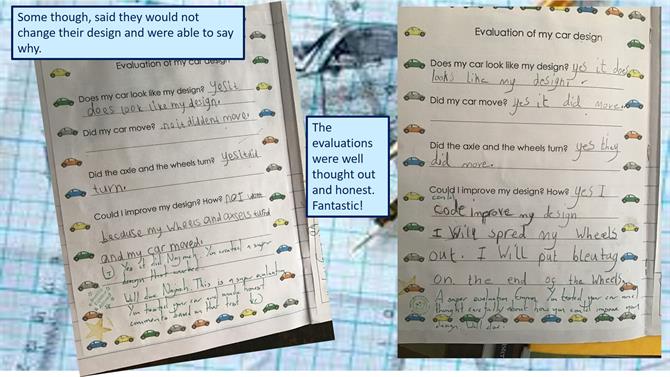 Some though, said they would not
change their design and were able to say
why.
Evaluation of my car design
Does my car look like my design? yes it
does look like my design.
Did my car move? no it diddent move.
Did the axle and the wheels turn? yes it did
turn.
Could I improve my design? How? no I
because my wheels and axsels turned
and my car moved.
Yes it did You created a super
design that worked
Well done This is a super evaluation
You tested your car and made honest
comments based on the test
The
evaluations
were well
thought out
and honest.
Fantastic!
Evaluation of my car design
Does my car look like my design? yes it does
looks like my design.
Did my car move? yes it did move.
Did the axle and the wheels turn? yes they
did move.
Could I improve my design? How? yes I
could
code improve my design
I Will spred my Wheels
out. I Will put bleutag
on the end of the Wheels
A super evaluation You tested your car and
thought carefully about how you could improve your
design. Well done